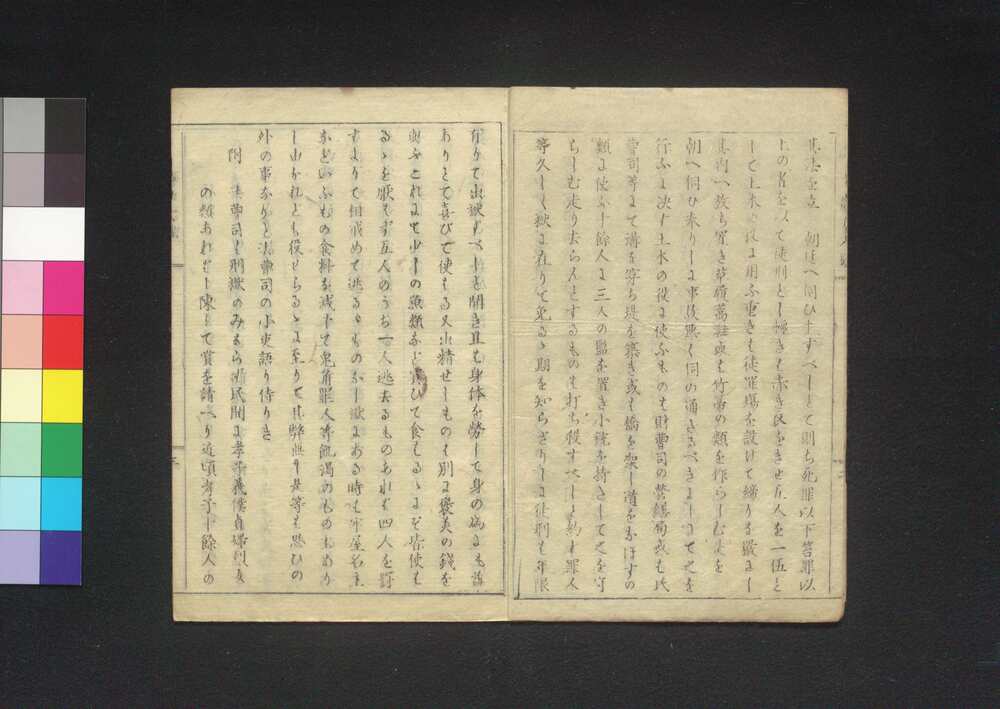 其法を立 朝廷へ伺ひ十すべしとて則ち死罪以下笞罪以
上の者を以て徒刑とし婦きは赤き衣をきせ五人を一伍と
して土木の役に用ふ重きは徒罪場を設けて締りを厳にし
其内へ放ち置き草履草鞋或は竹の類を作らしむ是を
朝へ伺ひ来りしに事後無く伺の通きるべきよしにて之を
行ふに決す土木の役に使ふものは財曹司の営繕局或は民
曹司等にて溝を穿ち堤を築き或は橋を架し道をなほすの
類に使ふ十餘人に三人の監を置き小銃を持たして之を守
らしむ走り去らんとするものは打ち殺すべしと約す罪人
等久しく獄に在りて免るゝ期を知らざりしに徒刑は年限
有りて出獄すべしと聞き且は身体を労して身の病にも
ありとて喜びて使はる又出精せしものは別に褒美の銭を
與ふこれにて少しの魚類など買ひて食はるゝにぞ皆使は
るゝを厭はず五人のうち一人逃去るものあれば四人を罰
すよりて相戒めて逃るゝものなし獄にある時は牢屋名主
などいふもの食料を減下て鬼角罪人等飢渇のものもあり
し由かれども役せらるゝに至りて其弊無し是等は思ひの
外の事なりと法曹司の小吏語り侍りき
附 法曹司は刑獄のみならず民間に孝弟義僕貞婦烈女
の類あれば上陳して賞を請へり近頃孝子十餘人の